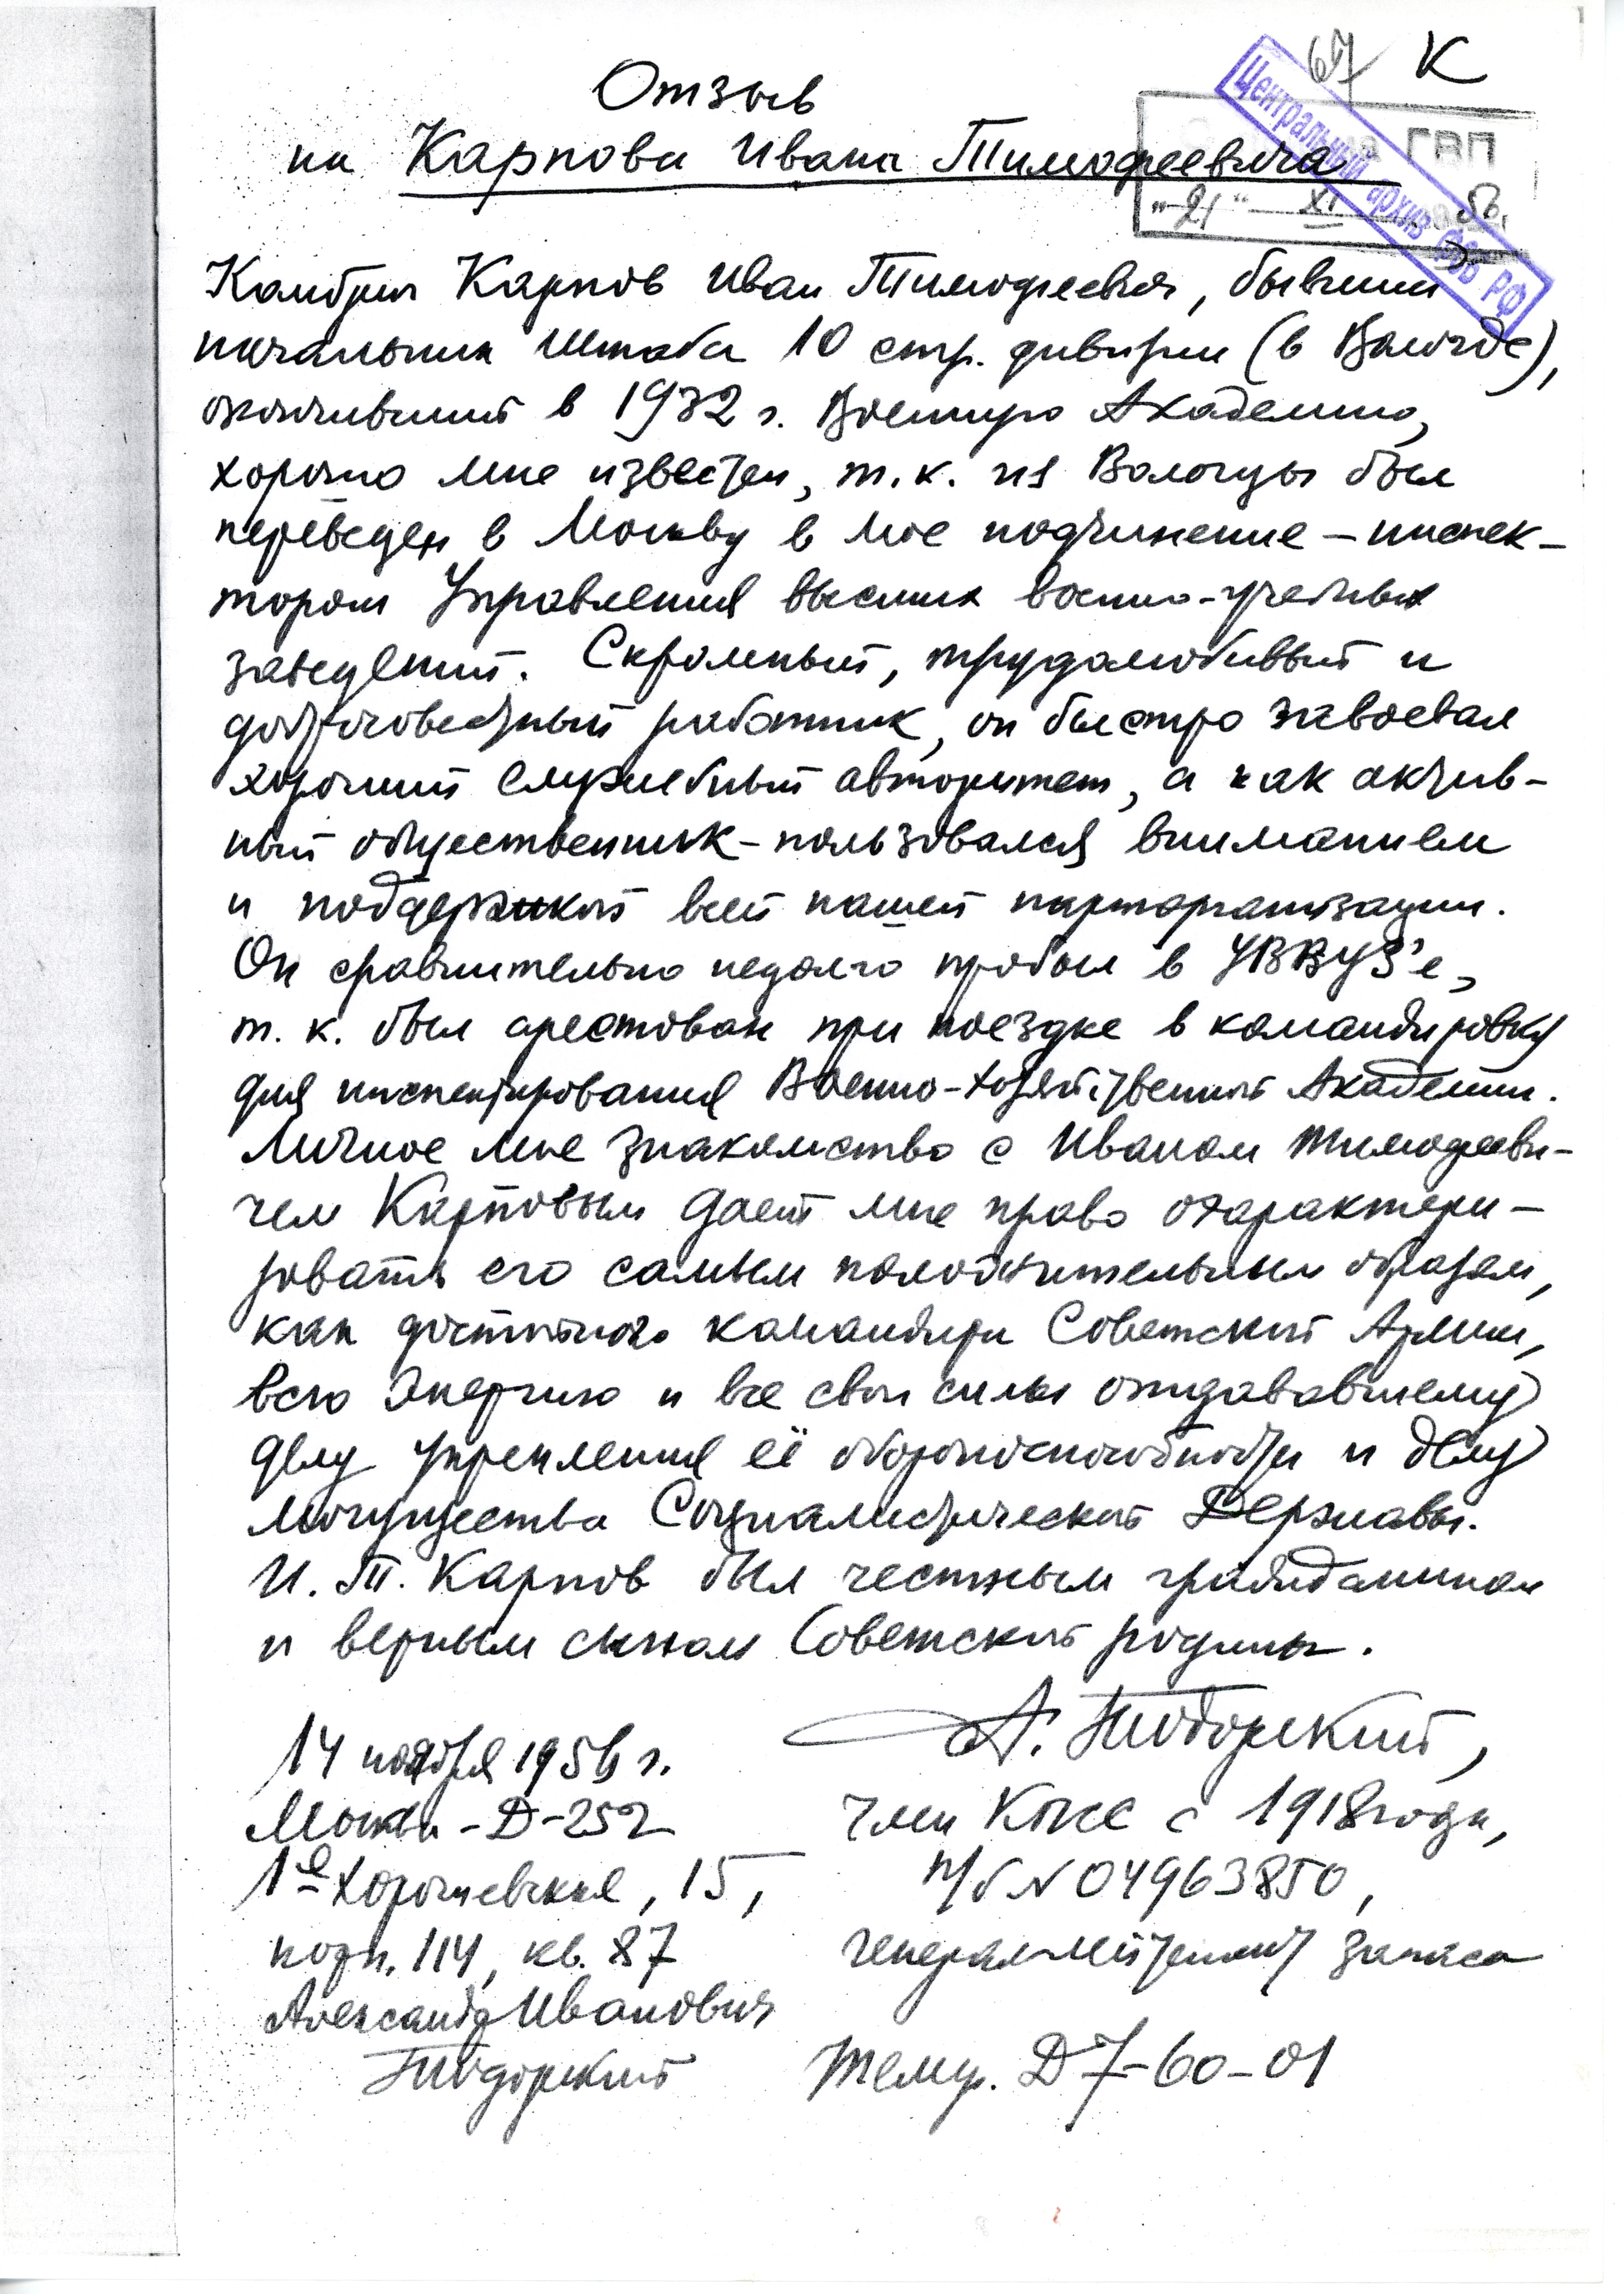 67 К
Отзыв
на Карпова Ивана Тимофеевича
ГВП
"21" XI 56.
Центральный архив ФСБ РФ
Комбриг Карпов Иван Тимофеевич, бывший
начальник штаба 10 стр. дивизии (в Вологде),
окончивший в 1932 г. Военную Академию,
хорошо мне известен, т.к. из Вологды был
переведен в Москву в мое подчинение – инспек–
тором Управления высших военно-учебных
заведений. Скромный, трудолюбивый и
добросовестный работник, он быстро завоевал
хороший служебный авторитет, а как актив–
ный общественник – пользовался вниманием
и поддержкой всей нашей парторганизации.
Он сравнительно недолго пробыл в УВВУЗ'е,
т. к. был арестован при поездке в командировку
для инспектирования Военно-хозяйственной Академии.
Личное мое знакомство с Иваном Тимофееви–
чем Карповым дает мне право охарактери–
зовать его самым положительным образом,
как достойного командира Советской Армии,
всю энергию и все свои силы отдававшему
делу укрепления её обороноспособности и делу
могущества Социалистической Державы.
И. Т. Карпов был честным гражданином
и верным сыном Советской родины.
А. Тодорский,
14 ноября 1956 г.
Москва – Д-252
член КПСС с 1918 года,
1я Хорошевская, 15,
п/б N 04963850,
корп. 114, кв. 87
генерал-лейтенант запаса
Александр Иванович
Тодорский
Телеф. Д 7-60-01